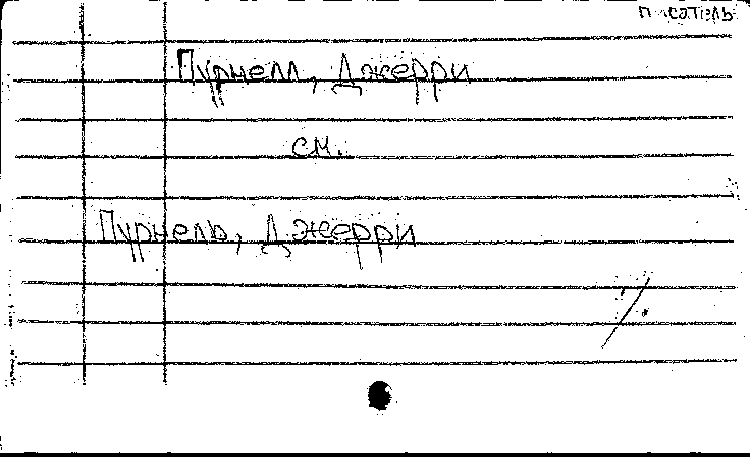 писатель
Пурнелл, Джерри
см.
Пурнель, Джерри